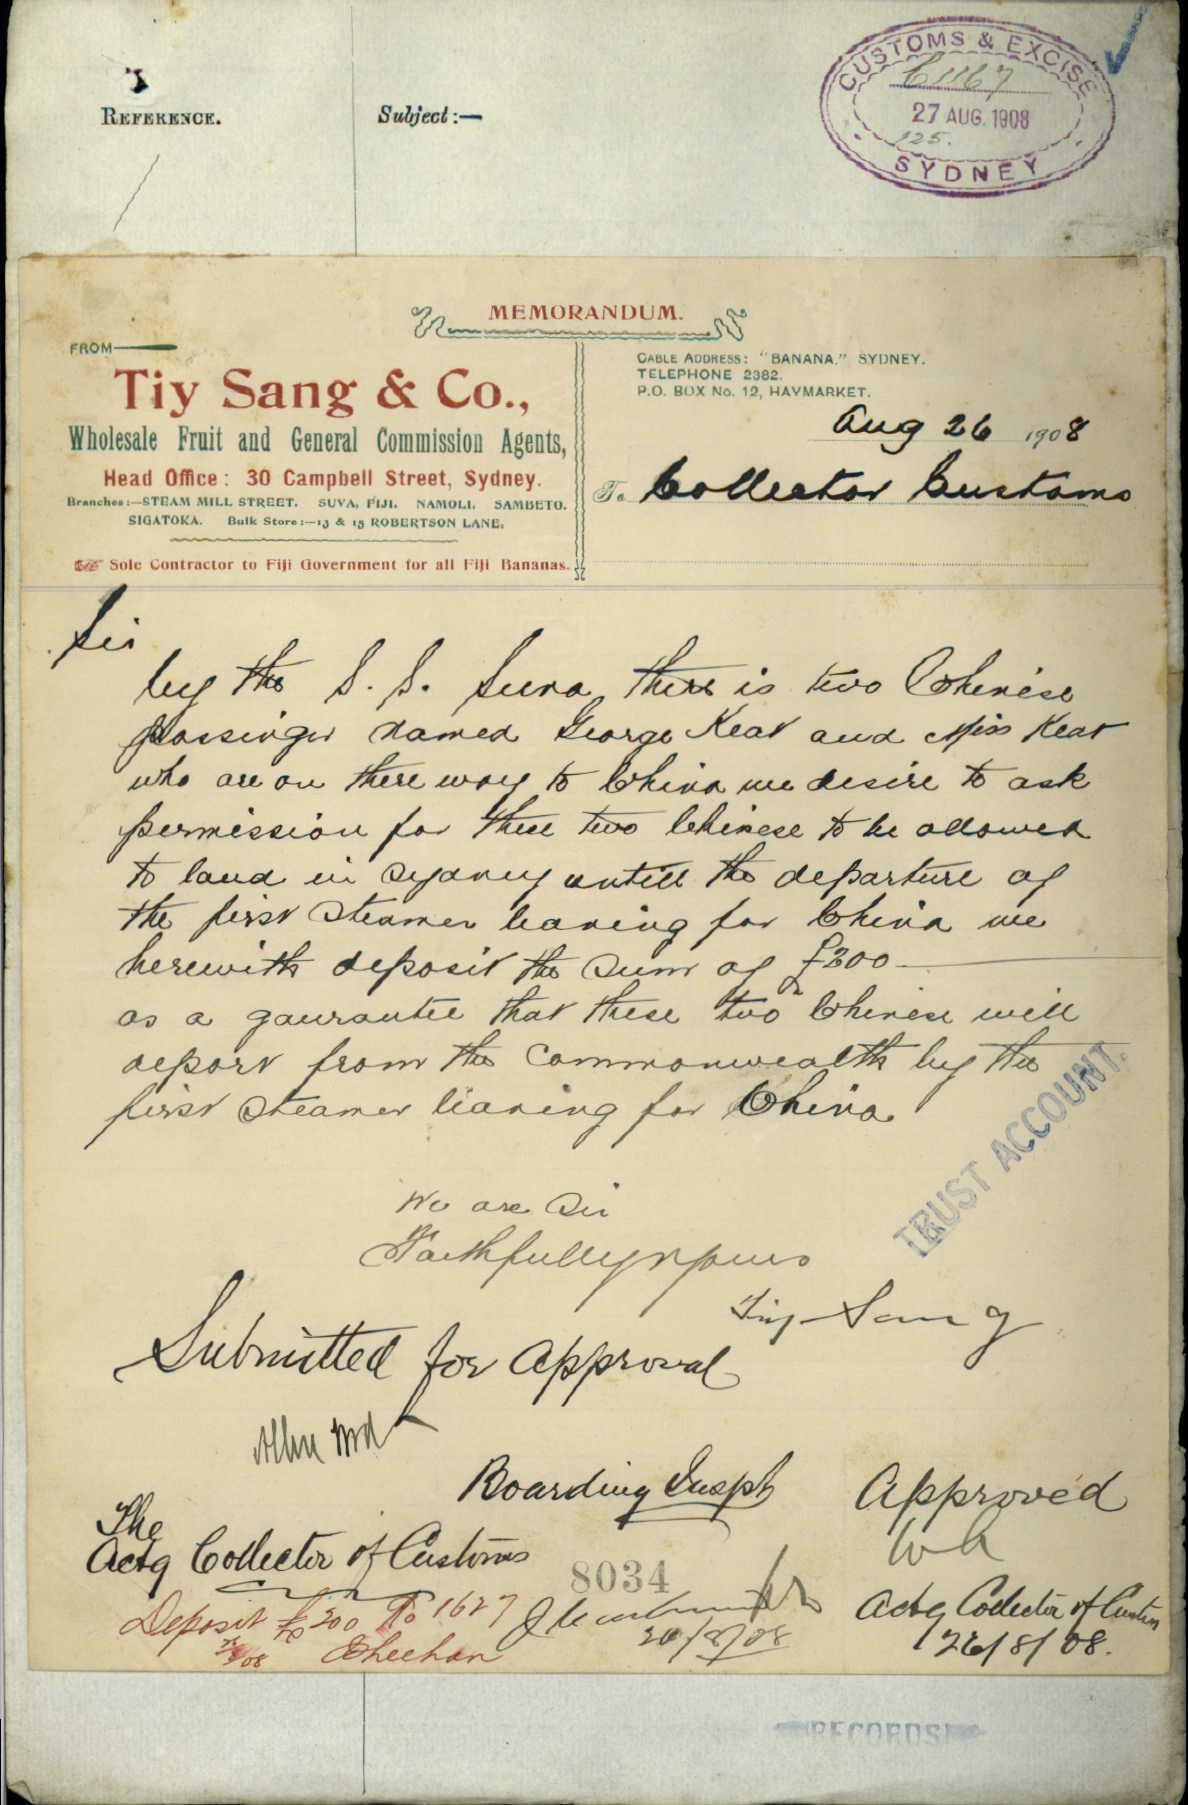 REFERENCE.
Subject:—
CUSTOMS & EXCISE
C1167
27 AUG. 1908
125.
SYDNEY
MEMORANDUM.
FROM
Tiy Sang & Co.,
Wholesale Fruit and General Commission Agents,
Head Office: 30 Campbell Street, Sydney.
Branches:—STEAM MILL STREET. SUVA, FIJI. NAMOLI. SAMBETO.
SIGATOKA. Bulk Store:—13 & 15 ROBERTSON LANE.
Sole Contractor to Fiji Government for all Fiji Bananas.
CABLE ADDRESS: "BANANA." SYDNEY.
TELEPHONE 2382.
P.O. BOX No. 12, HAYMARKET.
Aug 26 1908
To Collector Customs
Sir
by the S. S. Suva there is two Chinese
passinger named George Keat and Miss Keat
who are on there way to China we desire to ask
permission for these two Chinese to be allowed
to land in Sydney untill the departure of
the first steamer leaving for China we
herewith deposit the sum of £200
as a gaurantee that these two Chinese will
depart from the Commonwealth by the
first steamer leaving for China
TRUST ACCOUNT.
We are Sir
Faithfully yours
Tiy Sang
Submitted for approval
Boarding Inspr
Approved
The
Actg Collector of Customs
8034
Actg Collector of Customs
26/8/08.
Deposit £200 To 1627
26/8/08
Sheehan
RECORDS